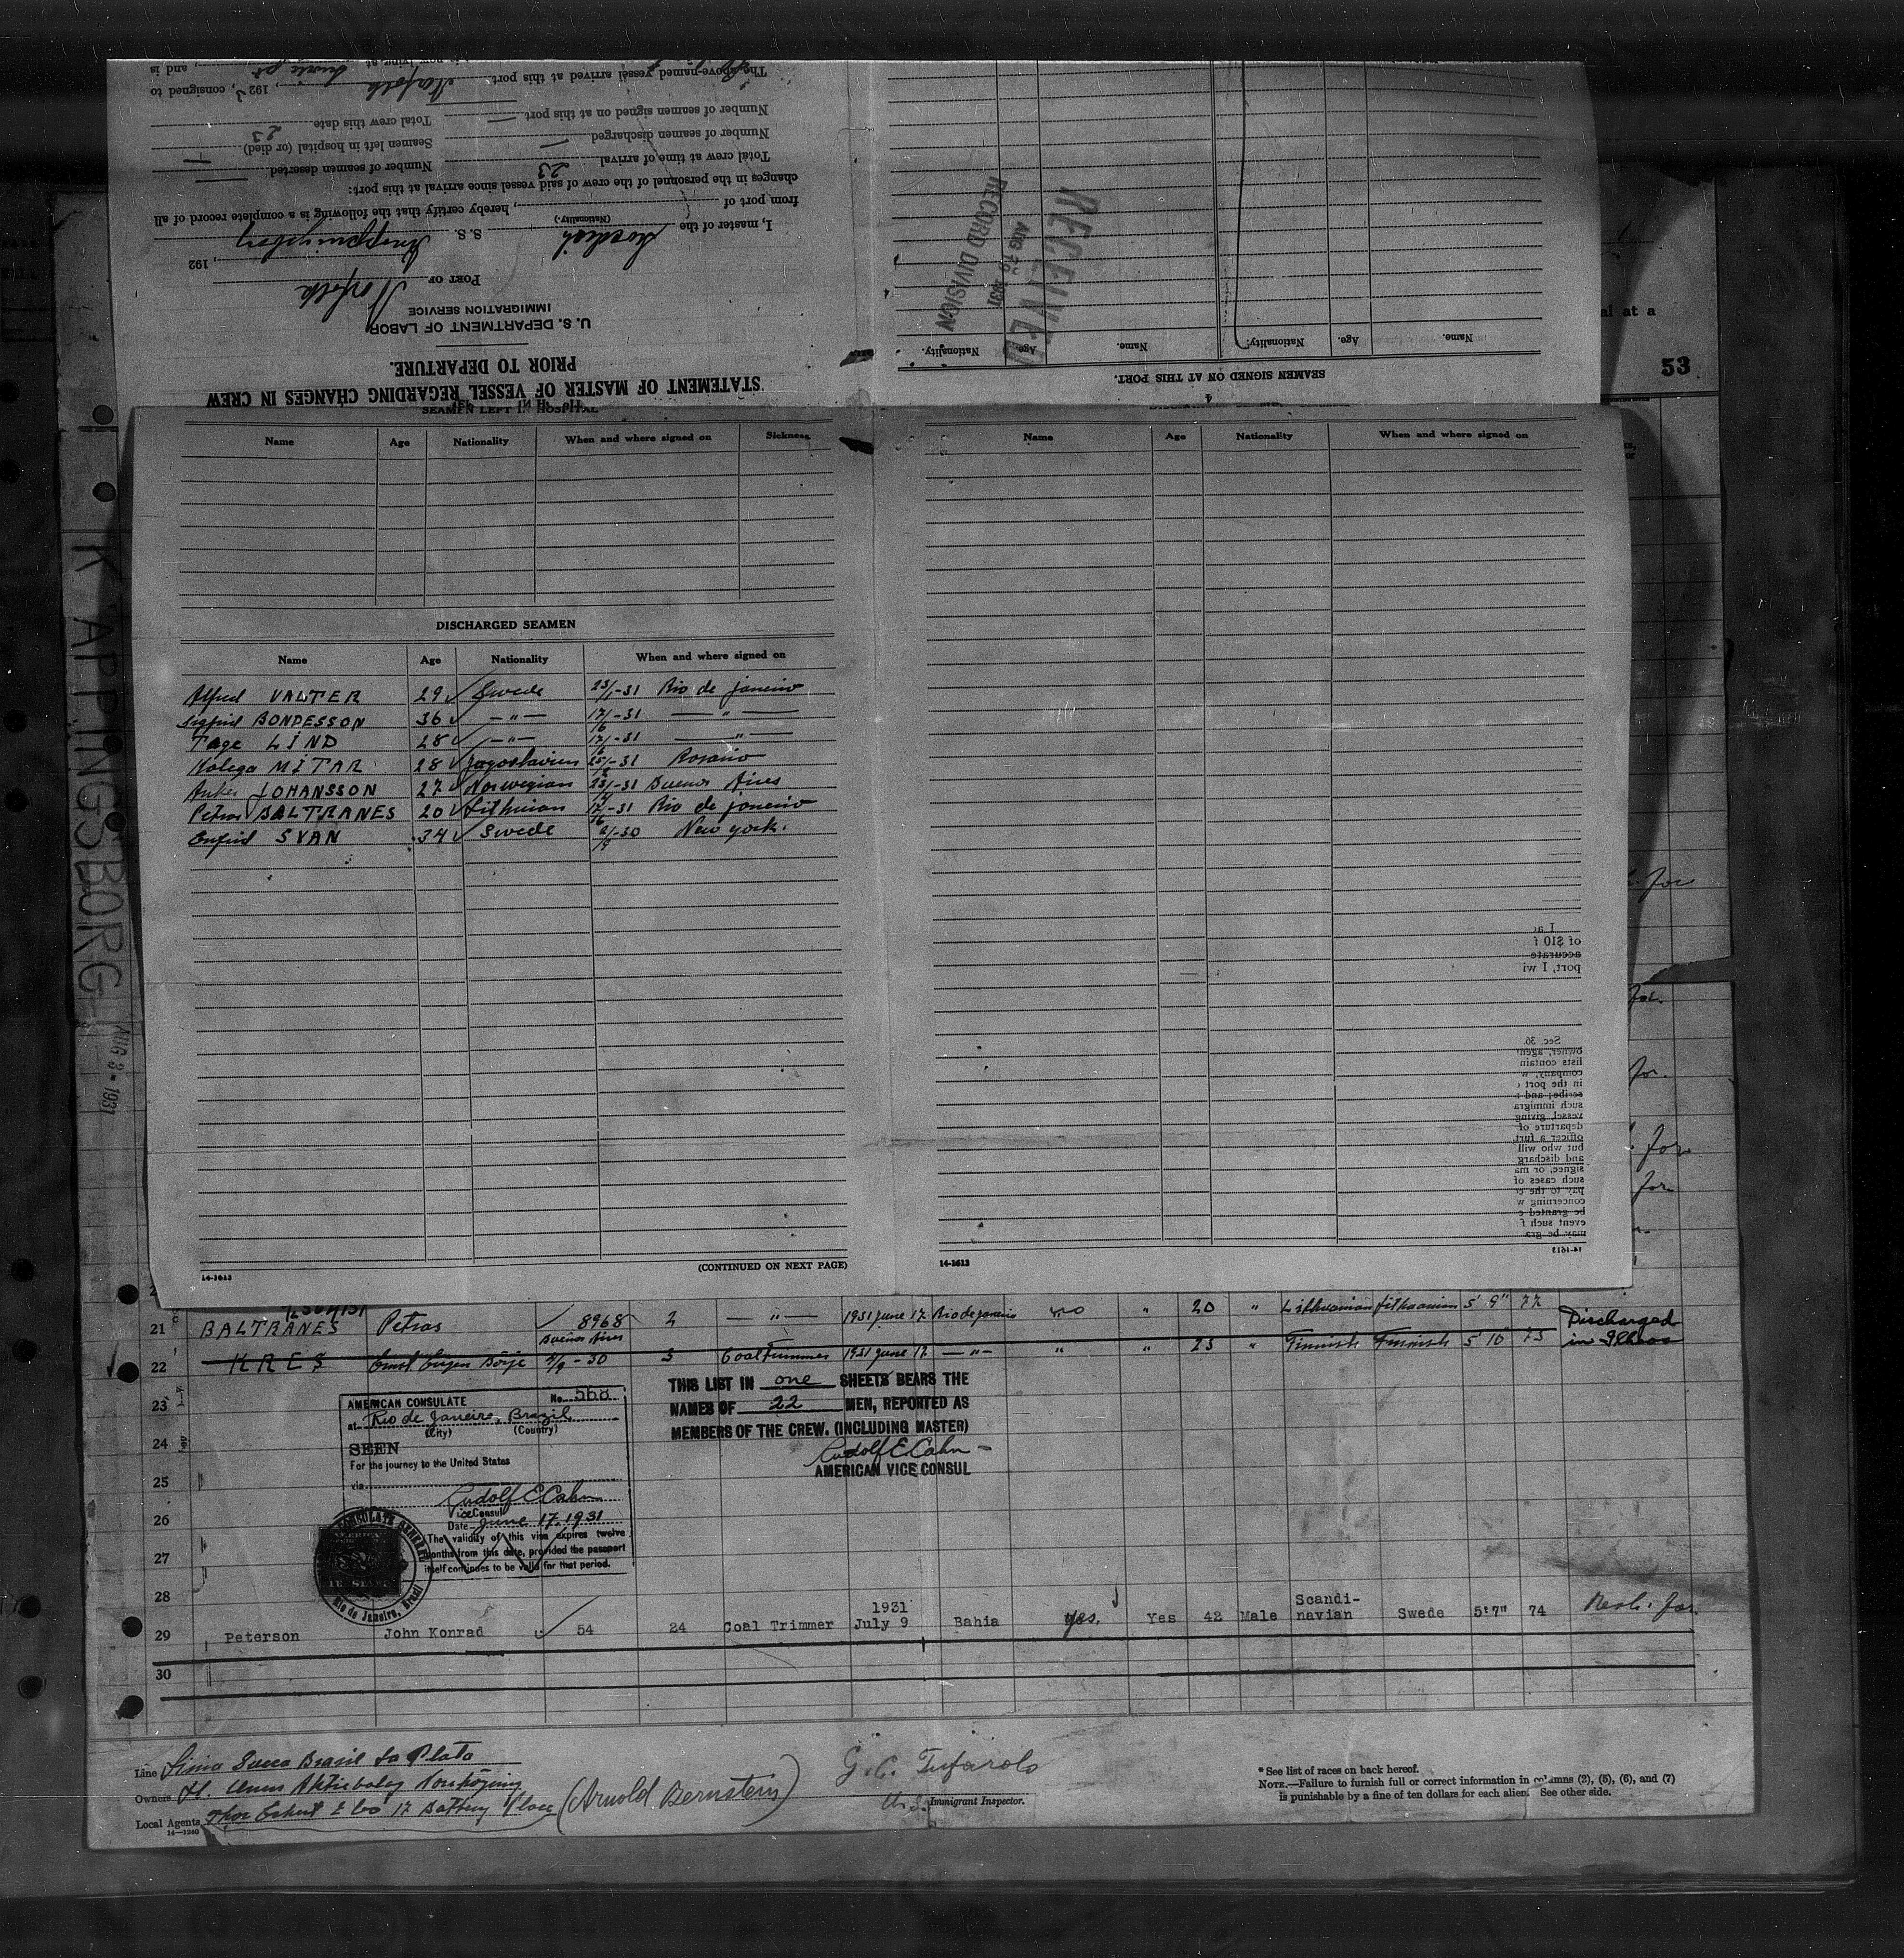 The above-named vessel arrived at this port
Norfolk, 1923, consigned to
Number of seamen signed on at this port
Total crew this date 23
Number of seamen discharged
Seamen left in hospital (or died)
Total crew at time of arrival 23
Number of seamen deserted
changes in the personnel of the crew of said vessel since arrival at this port:
from port of , hereby certify that the following is a complete record of all
(Nationality.)
I, master of the Swedish S. S. Kappingsborg
, 192
PORT OF Norfolk
IMMIGRATION SERVICE
U. S. DEPARTMENT OF LABOR
PRIOR TO DEPARTURE.
STATEMENT OF MASTER OF VESSEL REGARDING CHANGES IN CREW
RECEIVED
AUG 10 1931
RECORD DIVISION
Nationality. Age. Name. Nationality. Age. Name.
SEAMEN SIGNED ON AT THIS PORT.
al at a
53
SEAMEN LEFT IN HOSPITAL
Name Age Nationality When and where signed on Sickness
Name Age Nationality When and where signed on
DISCHARGED SEAMEN
Name Age Nationality When and where signed on
Alfred VALTER 29 Swede 23/1-31 Rio de janeiro
Sigfrid BONDESSON 36 —"— 17/6-31 —"—
Tage LIND 28 —"— 17/6-31 —"—
Kolega MITAR 28 Yugoslavien 25/-31 Rosario
JOHANSSON 27 Norwegian 23/-31 Buenos Aires
Petras BALTRANES 20 Lithuian 17/6-31 Rio de janeiro
SVAN 34 Swede 2/9-30 New york.
(CONTINUED ON NEXT PAGE)
14-1613
14-1613
KAPPINGSBORG
AUG 3 - 1931
I ac
of $10 f
accurate
port, I wi
Sec. 36
owner, agen
lists contain
company, w
in the port
scribe; and
such immigra
vessel, giving
departure of
officer a furt
but who will
and discharg
signee, or ma
such cases of
pay to the c
concerning w
be granted c
event such f
may be gra
14-1613
21 BALTRANES Petras 8968 2 —"— 1931 June 17 Rio de janeiro no " 20 " Lithuanian Lithuanian 5' 9" 77
Buenos Aires
Discharged
in Ilheos
22 KRES Ernst Eugen Börje 2/9-30 3 Coal Trimmer 1931 June 17 —"— " " 23 " Finnish Finnish 5' 10" 73
23
24
25
26
27
28
AMERICAN CONSULATE No. 568
at Rio de Janeiro, Brazil
(City) (Country)
SEEN
For the journey to the United States
via
Rudolf E. Cahn
Vice Consul
Date June 17, 1931
The validity of this visa expires twelve
months from this date, provided the passport
itself continues to be valid for that period.
Rio de Janeiro, Brazil
THIS LIST IN one SHEETS BEARS THE
NAMES OF 22 MEN, REPORTED AS
MEMBERS OF THE CREW. (INCLUDING MASTER)
Rudolf E. Cahn
AMERICAN VICE CONSUL
29 Peterson John Konrad 54 24 Coal Trimmer 1931 July 9 Bahia yes. Yes 42 Male Scandi-navian Swede 5'7" 74
30
Line Linia Sueca Brasil La Plata
Owners
Local Agents Thor Eckert & Co 17 Battery Place (Arnold Bernstein)
14—1240
G. C. Tufarolo
Immigrant Inspector.
* See list of races on back hereof.
NOTE.—Failure to furnish full or correct information in columns (2), (5), (6), and (7)
is punishable by a fine of ten dollars for each alien. See other side.